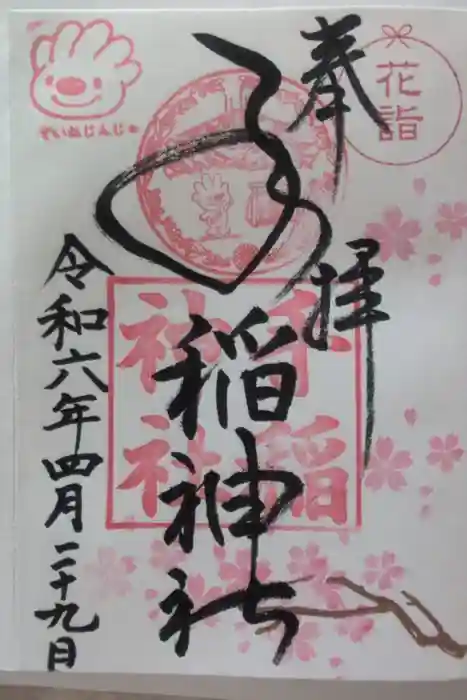 花詣
奉拝
手稲神社
手稲
神社
ていねじんじゃ
令和六年四月二十九日